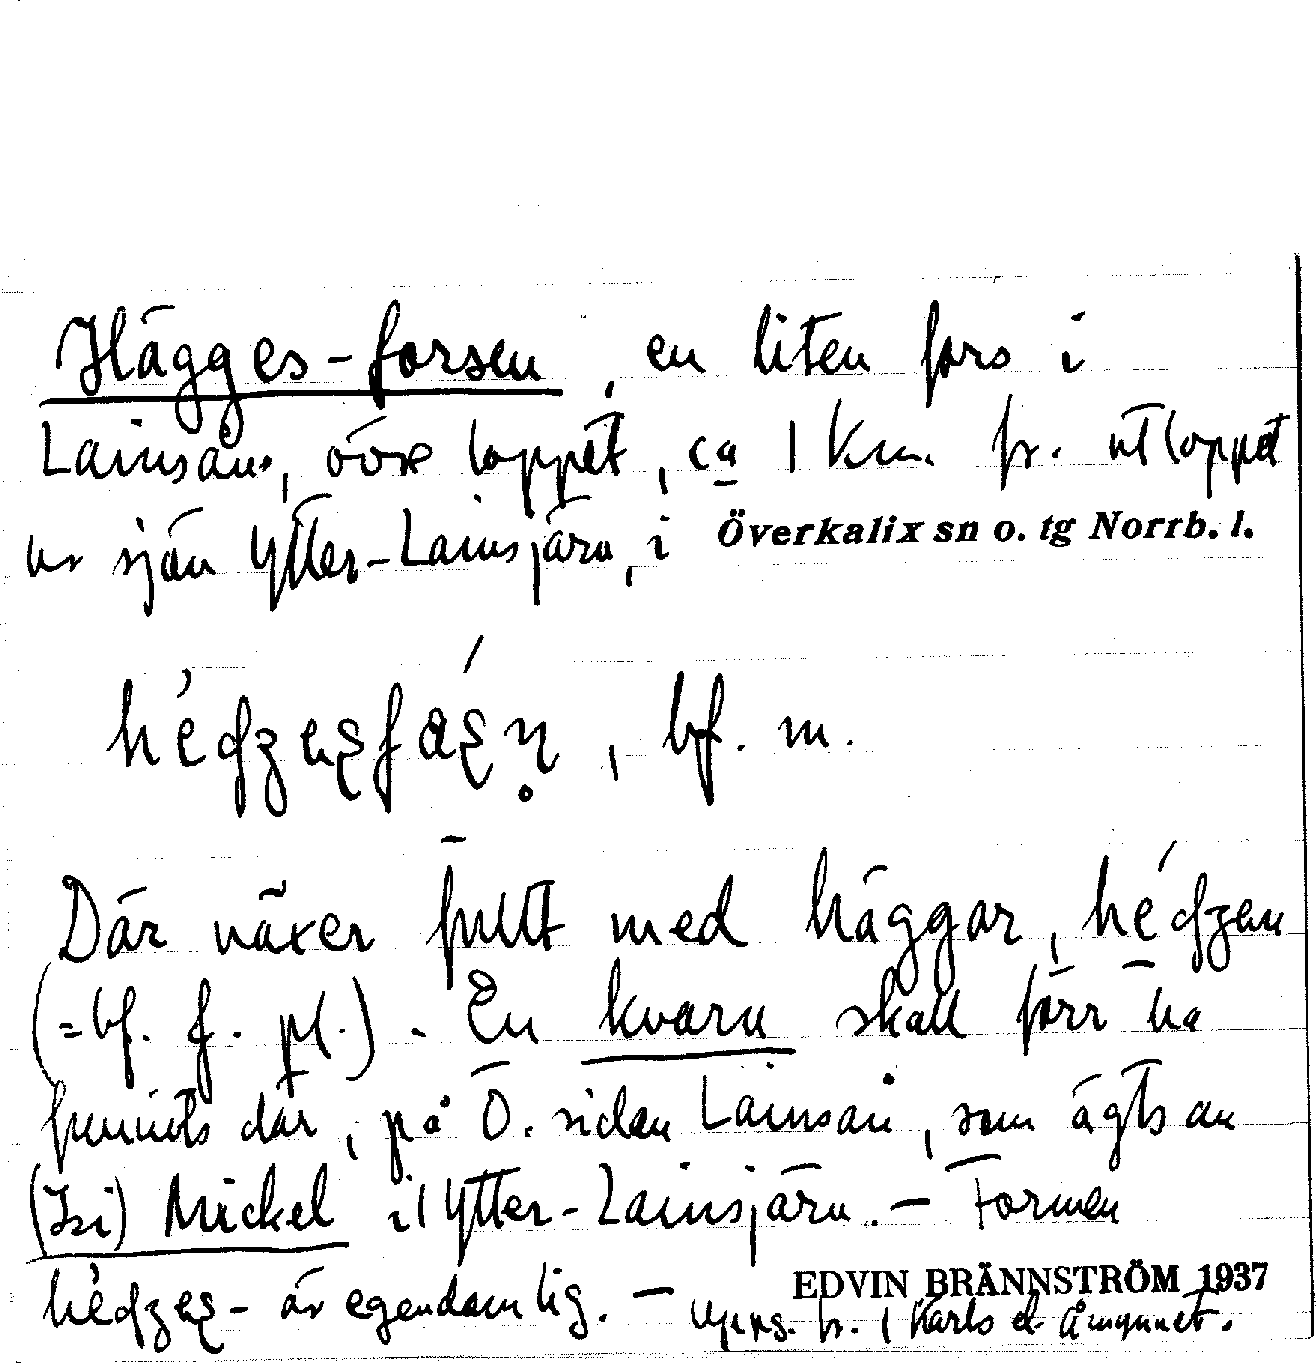 Hägges-forsen, en liten fors i
Lainsån, övre loppet, ca 1 km. fr. utloppet
ur sjön Ytter-Lainsjärv, i Överkalix sn o. tg Norrb. l.
, bf. m.
Där växer fullt med häggar,
(=bf. f. pl.). En kvarn skall förr ha
funnits där, på Ö. sidan Lainsån, som ägts av
Mickel i Ytter-Lainsjärv. — Formen
är egendomlig. —
EDVIN BRÄNNSTRÖM 1937
Upps. fr. Åmynnet.